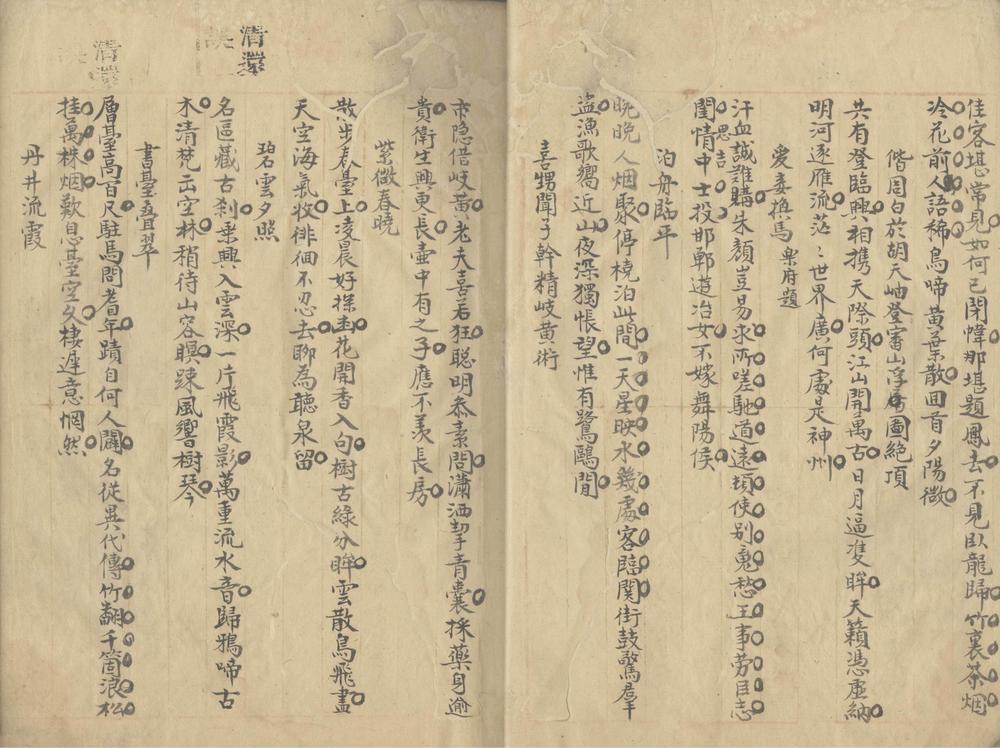 佳客堪常見如何已閉幃那堪題鳳去不見臥龍歸竹裏茶烟
冷花前人語稀鳥啼黃葉散回首夕陽微
偕周白於胡天岫登審山浮屠圖絕頂
共有登臨興相携天際頭江山開萬古日月逼雙眸天籟憑虛納
明河逐雁流茫〻世界廣何處是神州
愛妾換馬 樂府題
汗血誠難購朱顏豈易求所嗟馳道遠頃使別鬼愁王事勞臣志
思吉
閨情中士投邯鄲遊冶女不嫁舞陽侯
泊舟臨平
晚晚人烟聚停橈泊此間一天星映水幾處客臨関街鼓驚羣
盜漁歌嚮近山夜深獨悵望惟有鷺鷗閒
喜甥聞子幹精岐黃術
市隐借岐黃老夫喜若狂聪明叅素問瀟洒挈青囊採藥身逾
貴衛生興更長壺中有之子應不羨長房
紫微春曉
散步春臺上凌晨好探幽花開香入句樹古綠分眸雲散鳥飛盡
天空海氣收徘徊不忍去聊為聽泉留
碧雲夕照
名區藏古刹乗興入雲深一片飛霞影萬重流水音歸鴉啼古
木清梵出空林稍待山容瞑踈風響樹琴
書臺疊翠
層臺高百尺駐馬問耆年蹟自何人闢名從異代傳竹翻千箇浪松
挂萬株烟歎息臺空久棲遲意惘然
丹井流霞
清
清